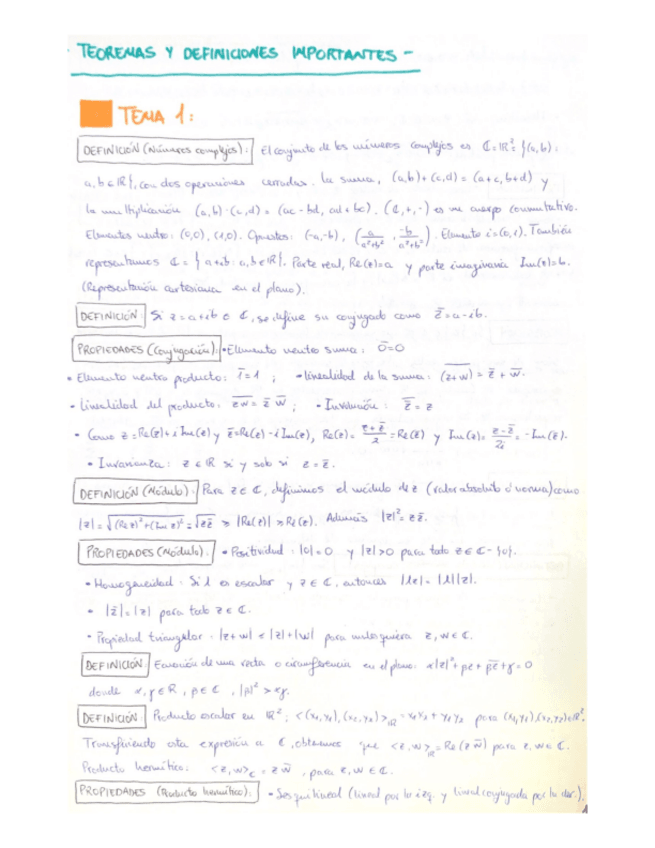 TEOREMAS Y DEFINICIONES IMPORTANTES -
TEMA 1:
DEFINICIÓN (Números complejos): El conjunto de los números complejos es ℂ=ℝ²={(a,b):
a,b∈ℝ}, con dos operaciones cerradas. La suma, (a,b)+(c,d)=(a+c,b+d) y
la multiplicación (a,b)·(c,d)=(ac-bd, ad+bc). (ℂ,+,·) es un cuerpo conmutativo.
Elementos neutro: (0,0), (1,0). Opuestos: (-a,-b), (a/a²+b², -b/a²+b²). Elemento i=(0,1). También
representamos ℂ={a+ib: a,b∈ℝ}. Parte real, Re(z)=a y parte imaginaria Im(z)=b.
(Representación cartesiana en el plano).
DEFINICIÓN: Si z=a+ib ∈ ℂ, se define su conjugado como z̅=a-ib.
PROPIEDADES (Conjugación): •Elemento neutro suma: 0̅=0
• Elemento neutro producto: 1̅=1 ; •Linealidad de la suma: \overline{(z+w)} = z̅ + w̅.
• Linealidad del producto: \overline{zw} = z̅ w̅ ; • Involución: z̿ = z
• Como z=Re(z)+i Im(z) y z̅=Re(z)-i Im(z), Re(z)= z+z̅/2 =Re(z̅) y Im(z)= z-z̅/2i =-Im(z̅).
• Invarianza: z∈ℝ si y solo si z=z̅.
DEFINICIÓN (Módulo): Para z∈ℂ, definimos el módulo de z (valor absoluto o norma) como
|z|=√(Re z)²+(Im z)²=√zz̅ ≥ |Re(z)| ≥ Re(z). Además |z|²=zz̅.
PROPIEDADES (Módulo): • Positividad: |0|=0 y |z|>0 para todo z∈ℂ-{0}.
• Homogeneidad: Si λ es escalar y z∈ℂ, entonces |λz|=|λ||z|.
• |z̅|=|z| para todo z∈ℂ.
• Propiedad triangular: |z+w| ≤ |z|+|w| para cualesquiera z,w∈ℂ.
DEFINICIÓN: Ecuación de una recta o circunferencia en el plano: α|z|²+βz+β̅z̅+γ=0
donde α,γ∈ℝ, β∈ℂ, |β|²>αγ.
DEFINICIÓN: Producto escalar en ℝ²: <(x₁,y₁),(x₂,y₂)>_ℝ=x₁x₂+y₁y₂ para (x₁,y₁),(x₂,y₂)∈ℝ².
Transfiriendo esta expresión a ℂ, obtenemos que <z,w>_ℝ=Re(zw̅) para z,w∈ℂ.
Producto hermítico: <z,w>_ℂ=zw̅, para z,w∈ℂ.
PROPIEDADES (Producto hermítico): • Sesquilineal (lineal por la izq. y lineal conjugada por la der.),
1